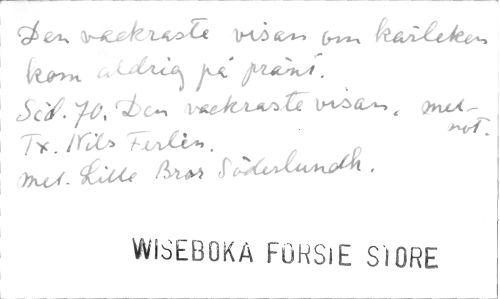 Den vackraste visan om kärleken
kom aldrig på pränt.
Sid. 70. Den vackraste visan. mel-
not.
Tx. Nils Ferlin.
mel. Lille Bror Söderlundh.
WISEBOKA FORSIE STORE